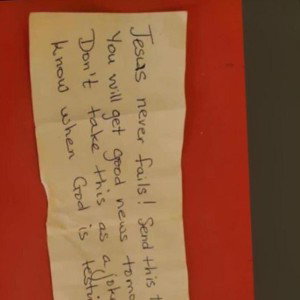 Jesus never fails! Send this
You will get good news
Don't take this as a joke
know when God is